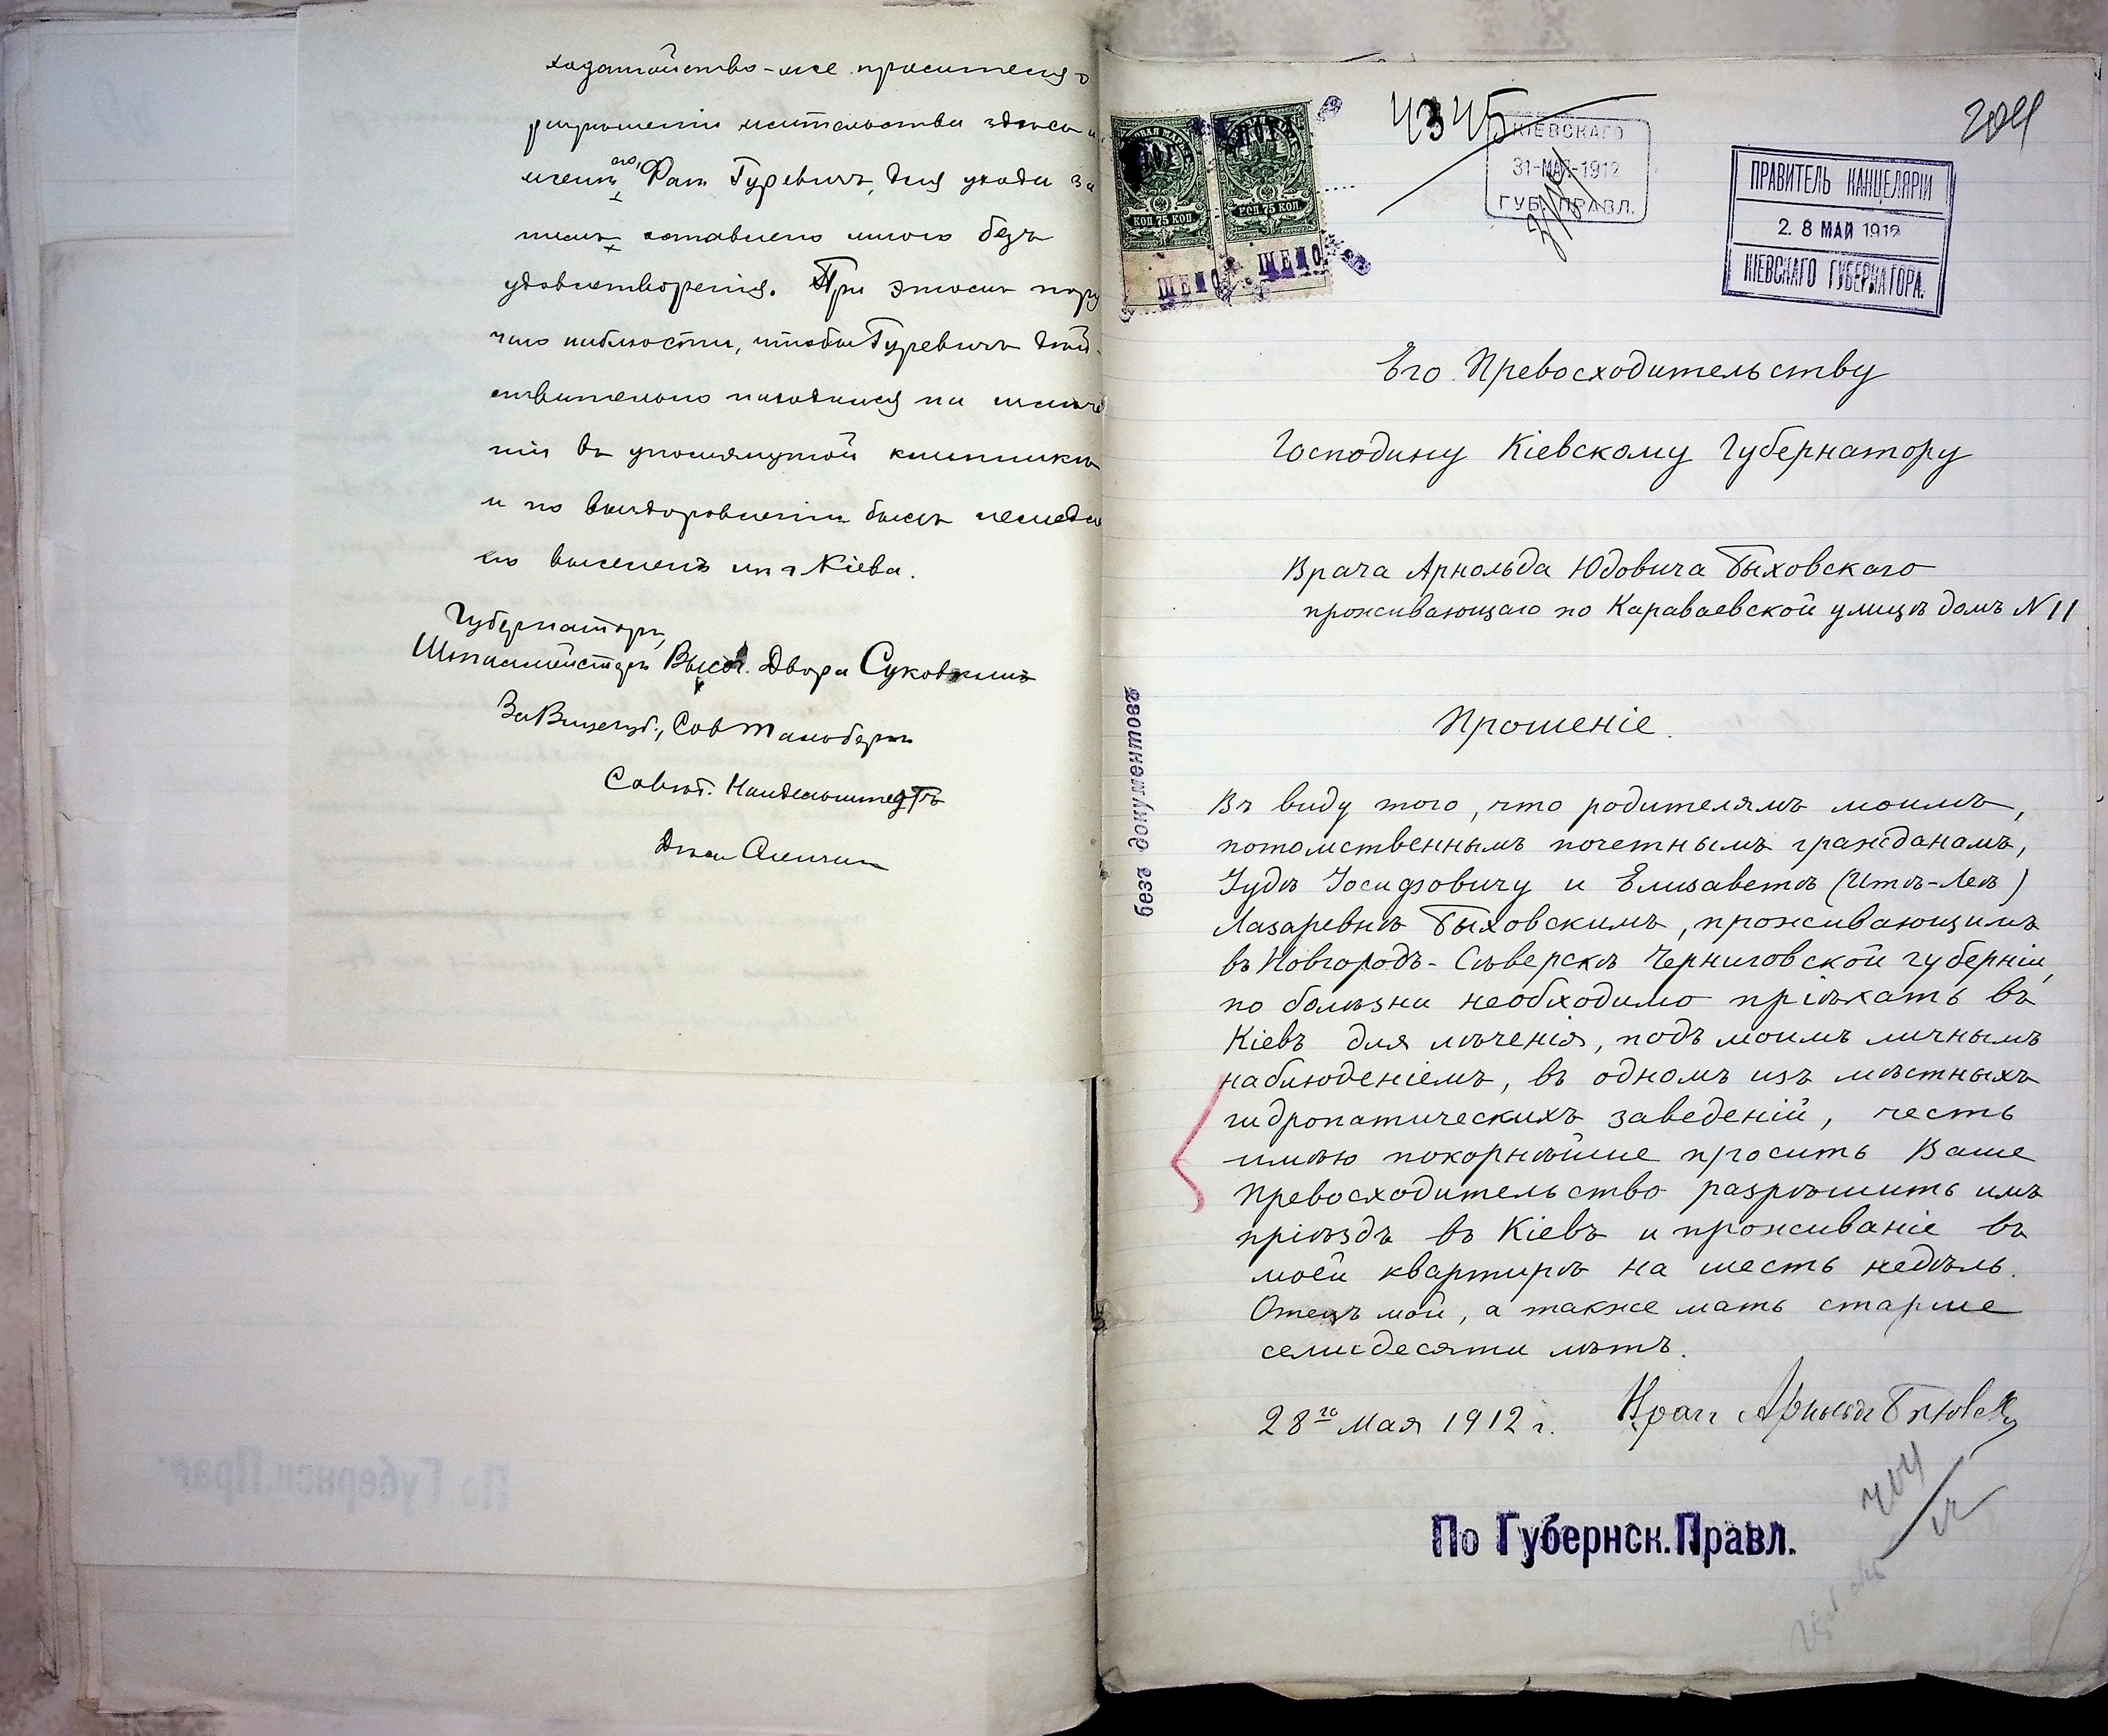 ходатайство-же просителя о
разрѣшенiи жительства здѣсь и
его,
женѣ Фан Гуревичъ, для ухода за
нимъ оставлено мною безъ
удовлетворенiя. При этомъ пору
чаю наблюсти, чтобы Гуревичъ дѣй-
ствительно находился на излѣче
нiи въ упомянутой клиникѣ
и по выздоровленiи былъ немедлен
но выселенъ изъ г Кiева.
Губернаторъ,
Шталмейстеръ Высоч. Двора Суковкинъ
За Вицегуб., Сов
Совѣт.
4345
204
КIЕВСКАГО
31-МАЯ-1912
ГУБ. ПРАВЛ.
ПРАВИТЕЛЬ КАНЦЕЛЯРIИ
28 МАЙ 1912
КIЕВСКАГО ГУБЕРНАТОРА.
КОП. 75 КОП. КОП. 75 КОП.
Его Превосходительству
Господину Кiевскому Губернатору
Врача Арнольда Юдовича Быховскаго
проживающаго по Караваевской улицѣ домъ № 11
Прошенiе.
безъ документовъ
Въ виду того, что родителямъ моимъ,
потомственнымъ почетнымъ гражданамъ,
Iудѣ Iосифовичу и Елизаветѣ (Итѣ-Леѣ)
Лазаревнѣ Быховскимъ, проживающимъ
въ Новгородъ-Сѣверскѣ Черниговской губернiи,
по болѣзни необходимо прiѣхать въ
Кiевъ для лѣченiя, подъ моимъ личнымъ
наблюденiемъ, въ одномъ изъ мѣстныхъ
гидропатическихъ заведенiй, честь
имѣю покорнѣйше просить Ваше
Превосходительство разрѣшить имъ
прiѣздъ въ Кiевъ и проживанiе въ
моей квартирѣ на шесть недѣль.
Отецъ мой, а также мать старше
семидесяти лѣтъ.
28го Мая 1912 г. Врач Арнольд Быховскiй
По Губернск. Правл.